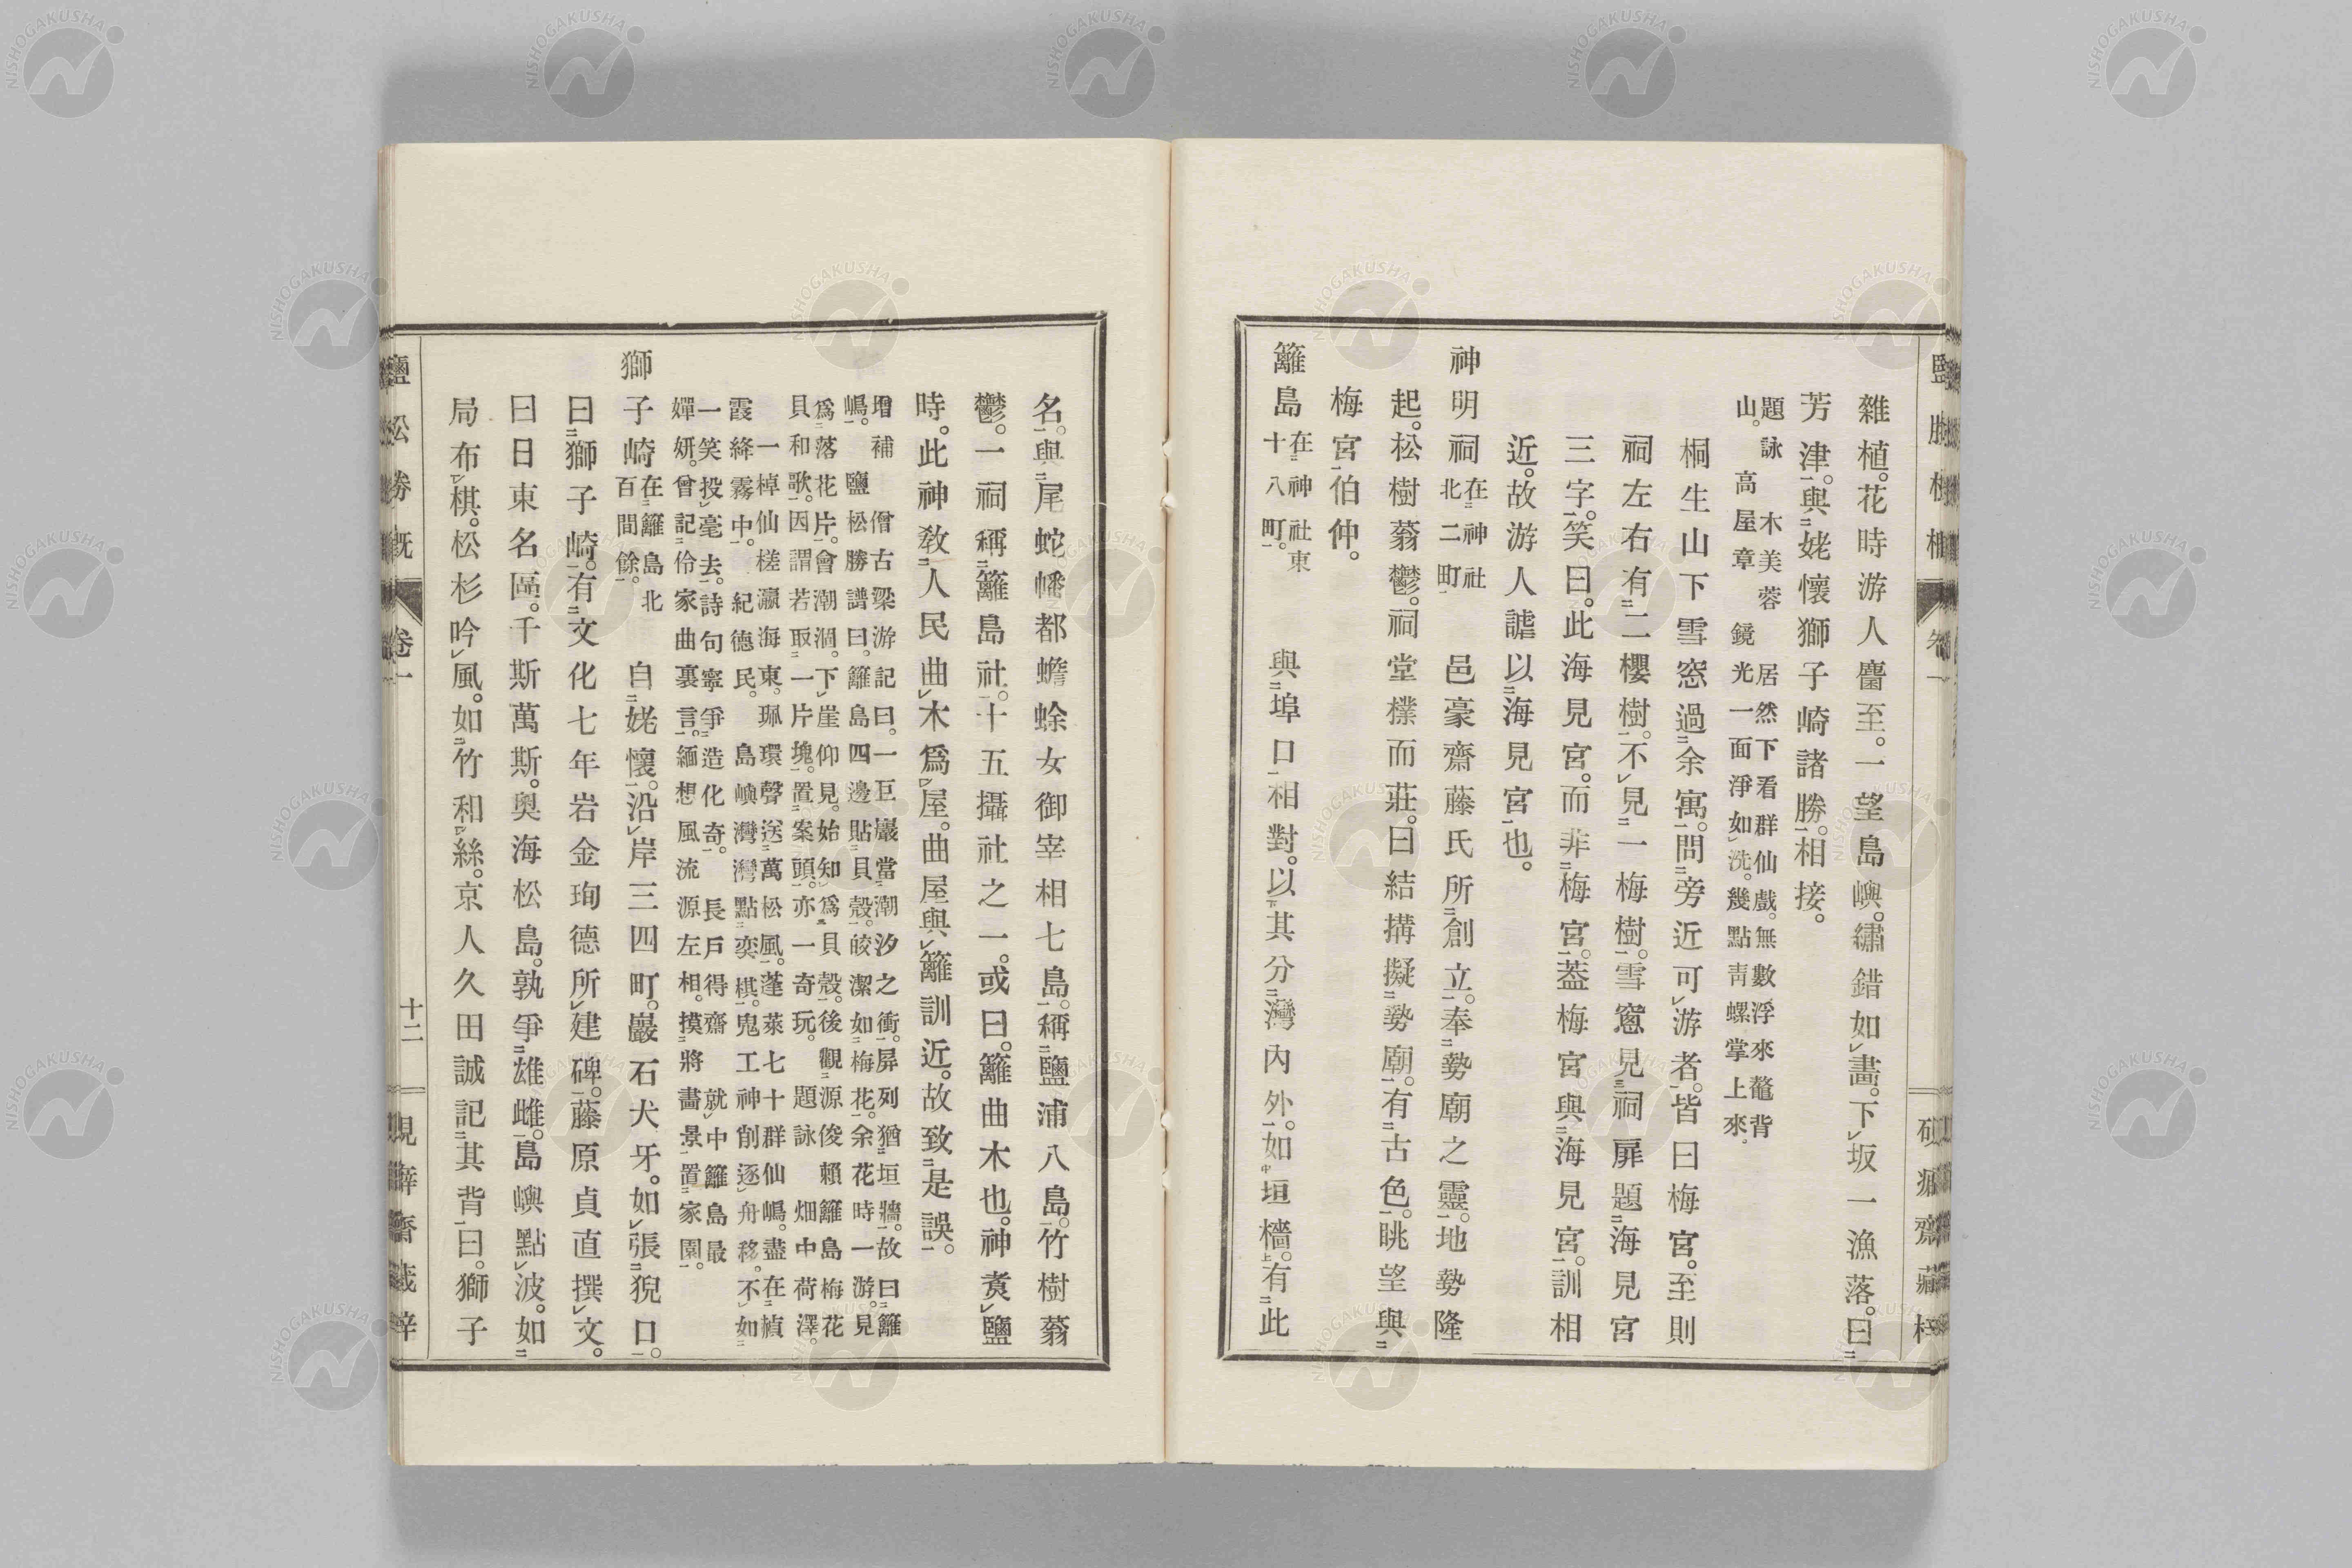 雜植。花時游人麕至。一望島嶼。繡錯如畫。下坂一漁落。曰
芳津。與姥懷獅子崎諸勝。相接。
題詠 木美蓉 居然下看群仙戲。無數浮來鼇背
山。 高屋章 鏡光一面淨如洗。幾點靑螺掌上來。
桐生山下雪窓過余寓。問旁近可游者。皆曰梅宮。至則
祠左右有二櫻樹。不見一梅樹。雪窓見祠扉題海見宮
三字。笑曰。此海見宮。而非梅宮。葢梅宮與海見宮。訓相
近。故游人謔以海見宮也。
神明祠 在神社北二町 邑豪齋藤氏所創立。奉勢廟之靈。地勢隆
起。松樹蓊鬱。祠堂樸而莊。曰結搆擬勢廟。有古色。眺望與
梅宮伯仲。
籬島 在神社東十八町。 與埠口相對。以其分灣內外。如垣檣。有此
名。與尾蛇幡都蟾蜍女御宰相七島。稱鹽浦八島。竹樹蓊
鬱。一祠稱籬島社。十五攝社之一。或曰。籬曲木也。神煑鹽
時。此神敎人民曲木爲屋。曲屋與籬訓近。故致是誤。
增補 僧古梁游記曰。一巨巖當潮汐之衝。屏列猶垣牆。故曰籬
嶋。 鹽松勝譜曰。籬島四邊貼貝殼。皎潔如梅花。余花時一游。見
爲落花片。會潮涸。下崖仰見。始知爲貝殼。後觀源俊賴籬島梅花
貝和歌。因謂若取一片塊。置案頭。亦一奇玩。 題詠 畑中荷澤。
一棹仙槎瀛海東。珮環聲送萬松風。蓬萊七十群仙嶋。盡在楨
霞絳霧中。 紀德民。 島嶼灣灣點奕棋。鬼工神削逐舟移。不如
一笑投毫去。詩句寧爭造化奇。 長戶得齋 就中籬島最
嬋妍。曾記伶家曲裏言。緬想風流源左相。摸將畵景置家園。
獅子崎 在籬島北百間餘。 自姥懷。沿岸三四町。巖石犬牙。如張猊口。
曰獅子崎。有文化七年岩金珣德所建碑。藤原貞直撰文。
曰日東名區。千斯萬斯。奧海松島。孰爭雄雌。島嶼點波。如
局布棋。松杉吟風。如竹和絲。京人久田誠記其背曰。獅子
鹽松勝槩 卷一 十二